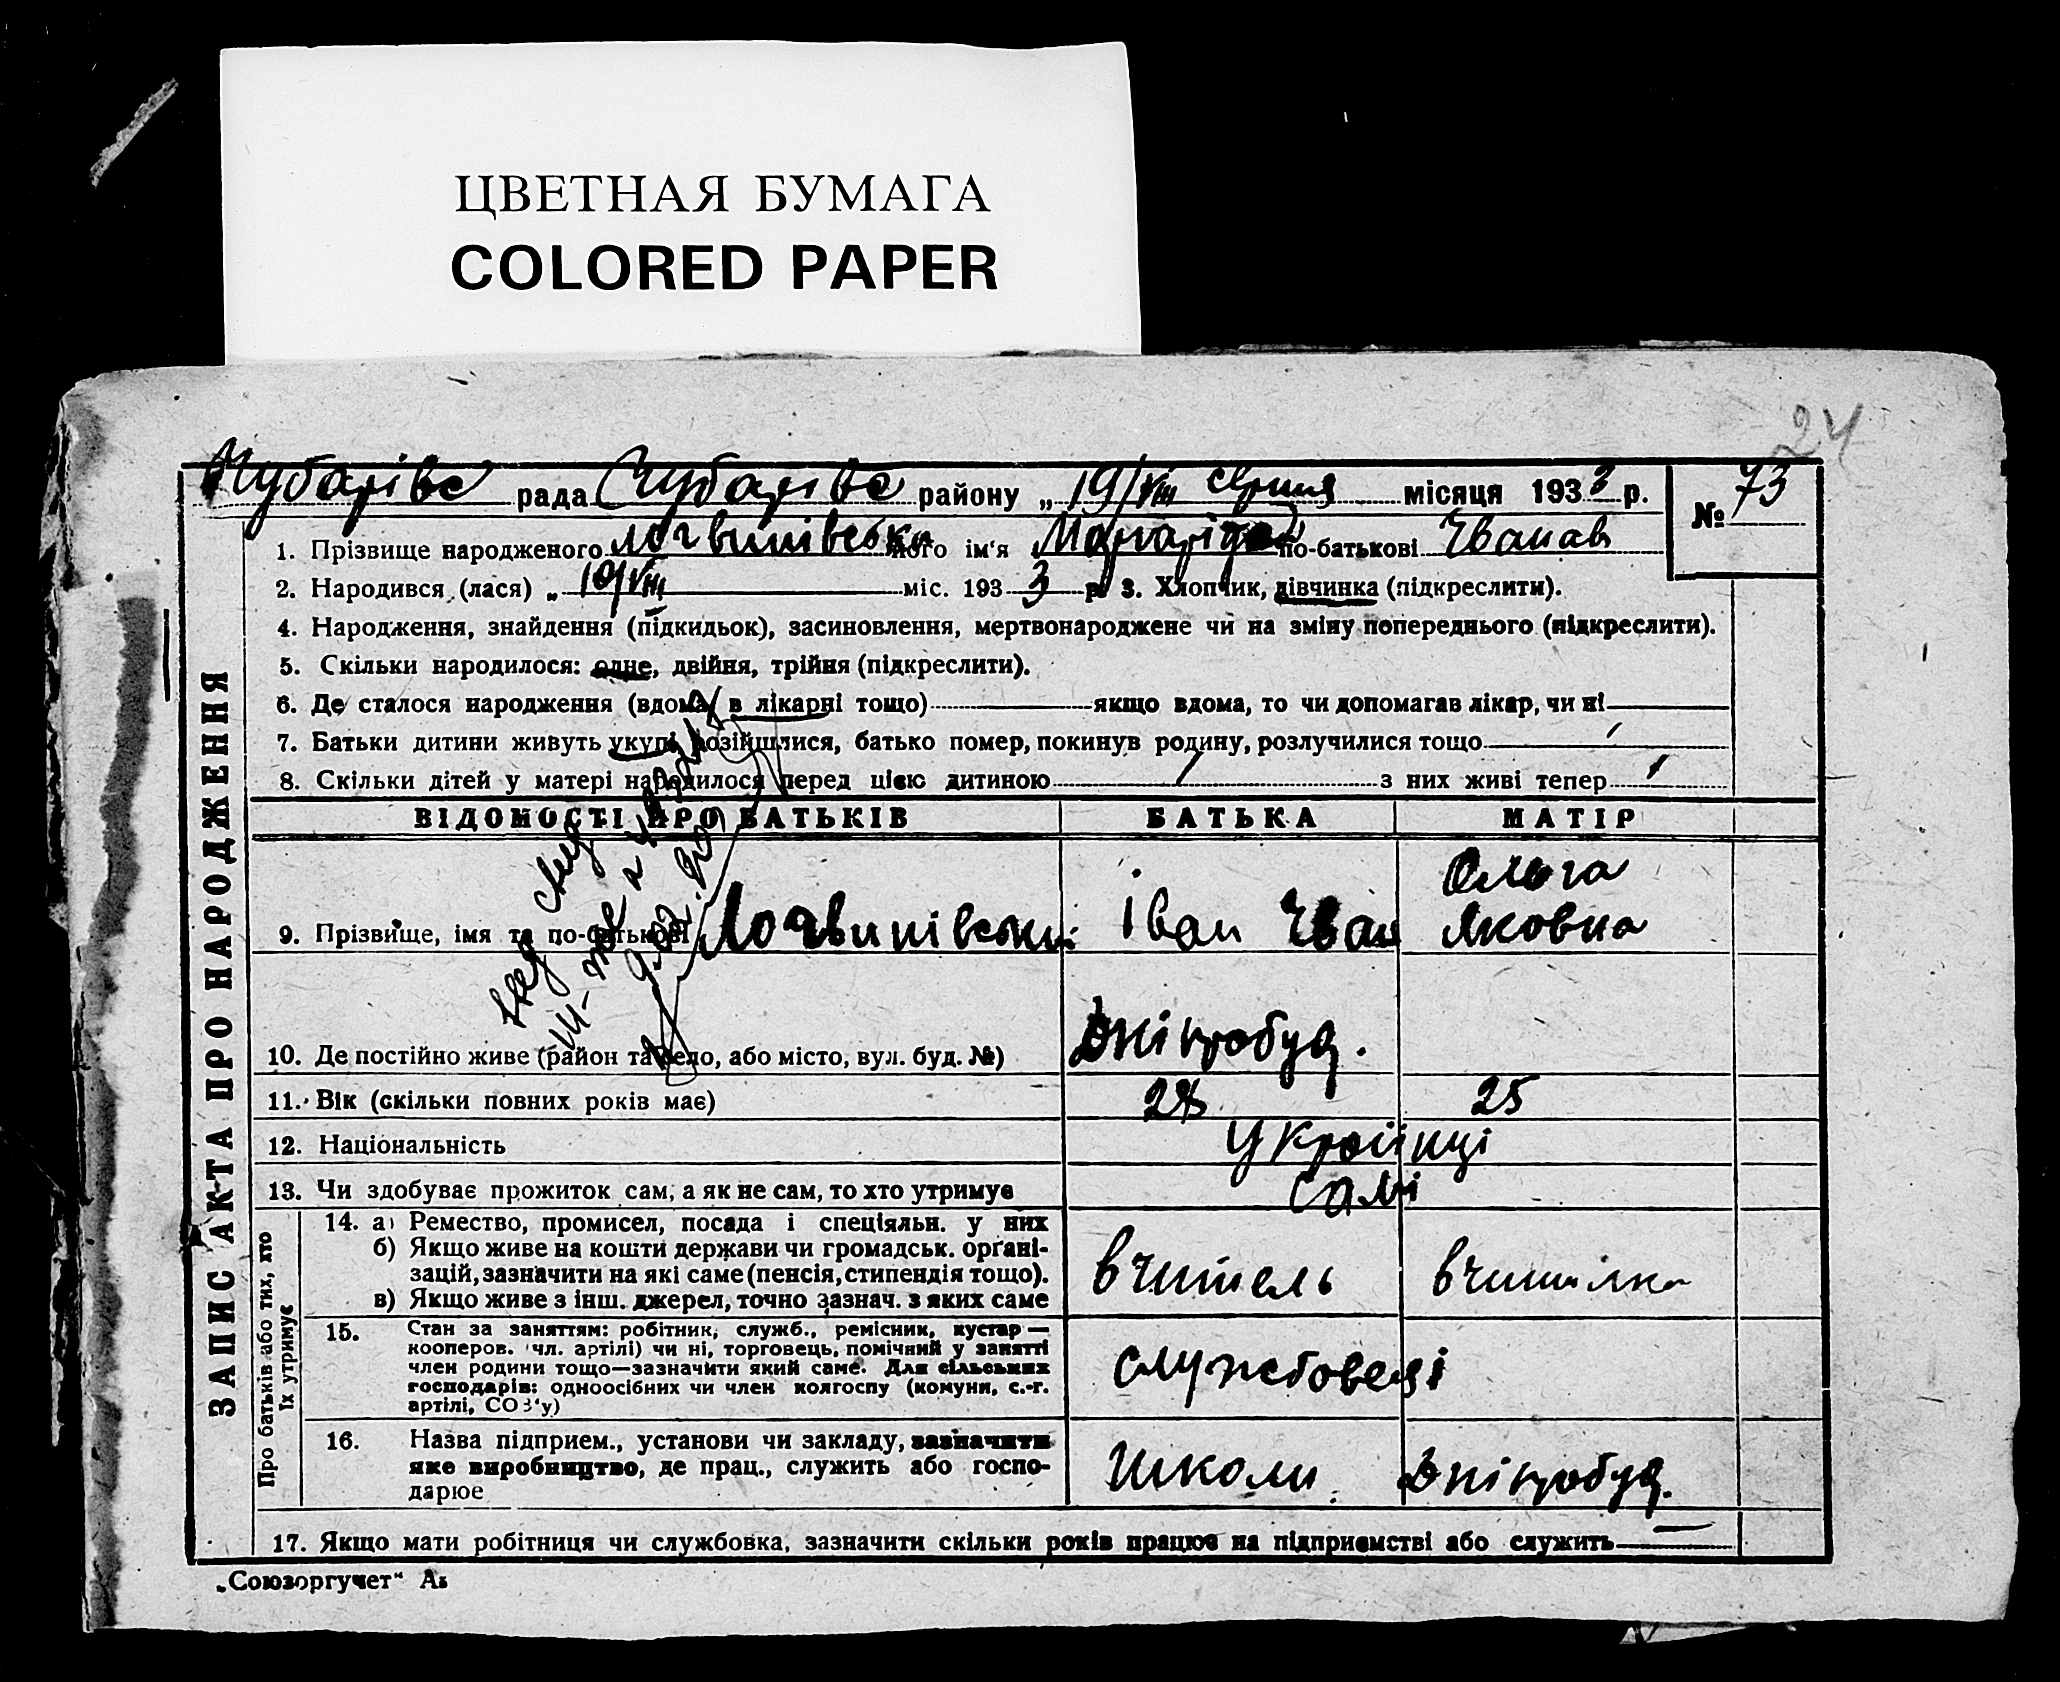 ЦВЕТНАЯ БУМАГА
COLORED PAPER
24
Чубарівс рада Чубарівс району „ 19/VIII серпня місяця 1933 р. № 73
1. Прізвище народженого Логвинівська його ім‘я Маргаріта по-батькові Іванав
2. Народився (лася) „ 10/VIII міс. 193 3 р. 3. Хлопчик, дівчинка (підкреслити).
4. Народження, знайдення (підкидьок), засиновлення, мертвонароджене чи на зміну попереднього (підкреслити).
5. Скільки народилося: одне, двійня, трійня (підкреслити).
6. Де сталося народження (вдома, в лікарні тощо) якщо вдома, то чи допомагав лікар, чи ні
7. Батьки дитини живуть укупі, розійшлися, батько помер, покинув родину, розлучилися тощо
8. Скільки дітей у матері народилося перед цією дитиною 1 з них живі тепер 1
ЗАПИС АКТА ПРО НАРОДЖЕННЯ
ВІДОМОСТІ ПРО БАТЬКІВ БАТЬКА МАТІР
9. Прізвище, імя та по-батькові Логвинівськи Іван Іван Ольга Яковна
10. Де постійно живе (район та село, або місто, вул. буд. №) Дніпробуд.
11. Вік (скільки повних років має) 28 25
12. Національність Українці
13. Чи здобуває прожиток сам, а як не сам, то хто утримує самі
Про батьків або тих, хто
їх утримує
14. а) Ремество, промисел, посада і спеціяльн. у них
б) Якщо живе на кошти держави чи громадськ. органі-
зацій, зазначити на які саме (пенсія, стипендія тощо).
в) Якщо живе з інш. джерел, точно зазнач. з яких саме
вчитель вчителка
15. Стан за заняттям: робітник, служб., ремісник, кустар —
кооперов. чл. артілі) чи ні, торговець, помічний у занятті
член родини тощо—зазначити який саме. Для сільських
господарів: одноосібних чи член колгоспу (комуни, с.-г.
артілі, СОЗ‘у)
службовеці
16. Назва підприєм., установи чи закладу, зазначити
яке виробництво, де прац., служить або госпо-
дарює
Школи Дніпробуд.
17. Якщо мати робітниця чи службовка, зазначити скільки років працює на підприємстві або служить —
„Союзоргучет“